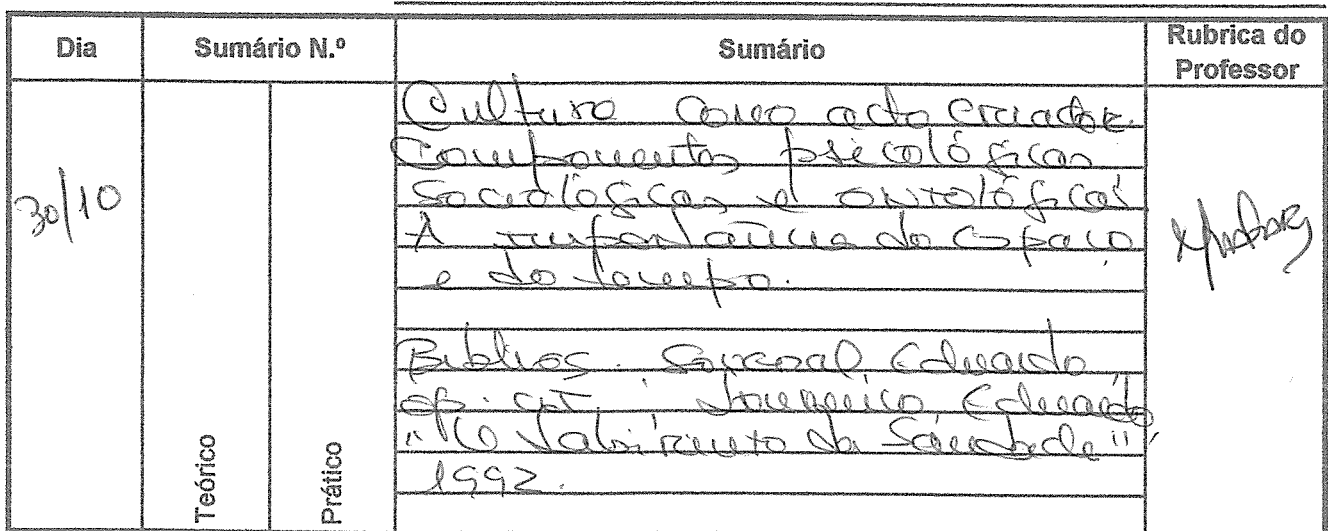 Dia
Sumário N.º
Sumário
Rubrica do
Professor
30/10
Teórico
Prático
Cultura como acto criador.
Componentes psicológicas
sociológicas e ontológicas
A importância do espaço
e do tempo.
Bibliog. Eduardo
op. cit. Lourenço, Eduardo
"O Labirinto da Saudade",
1992.